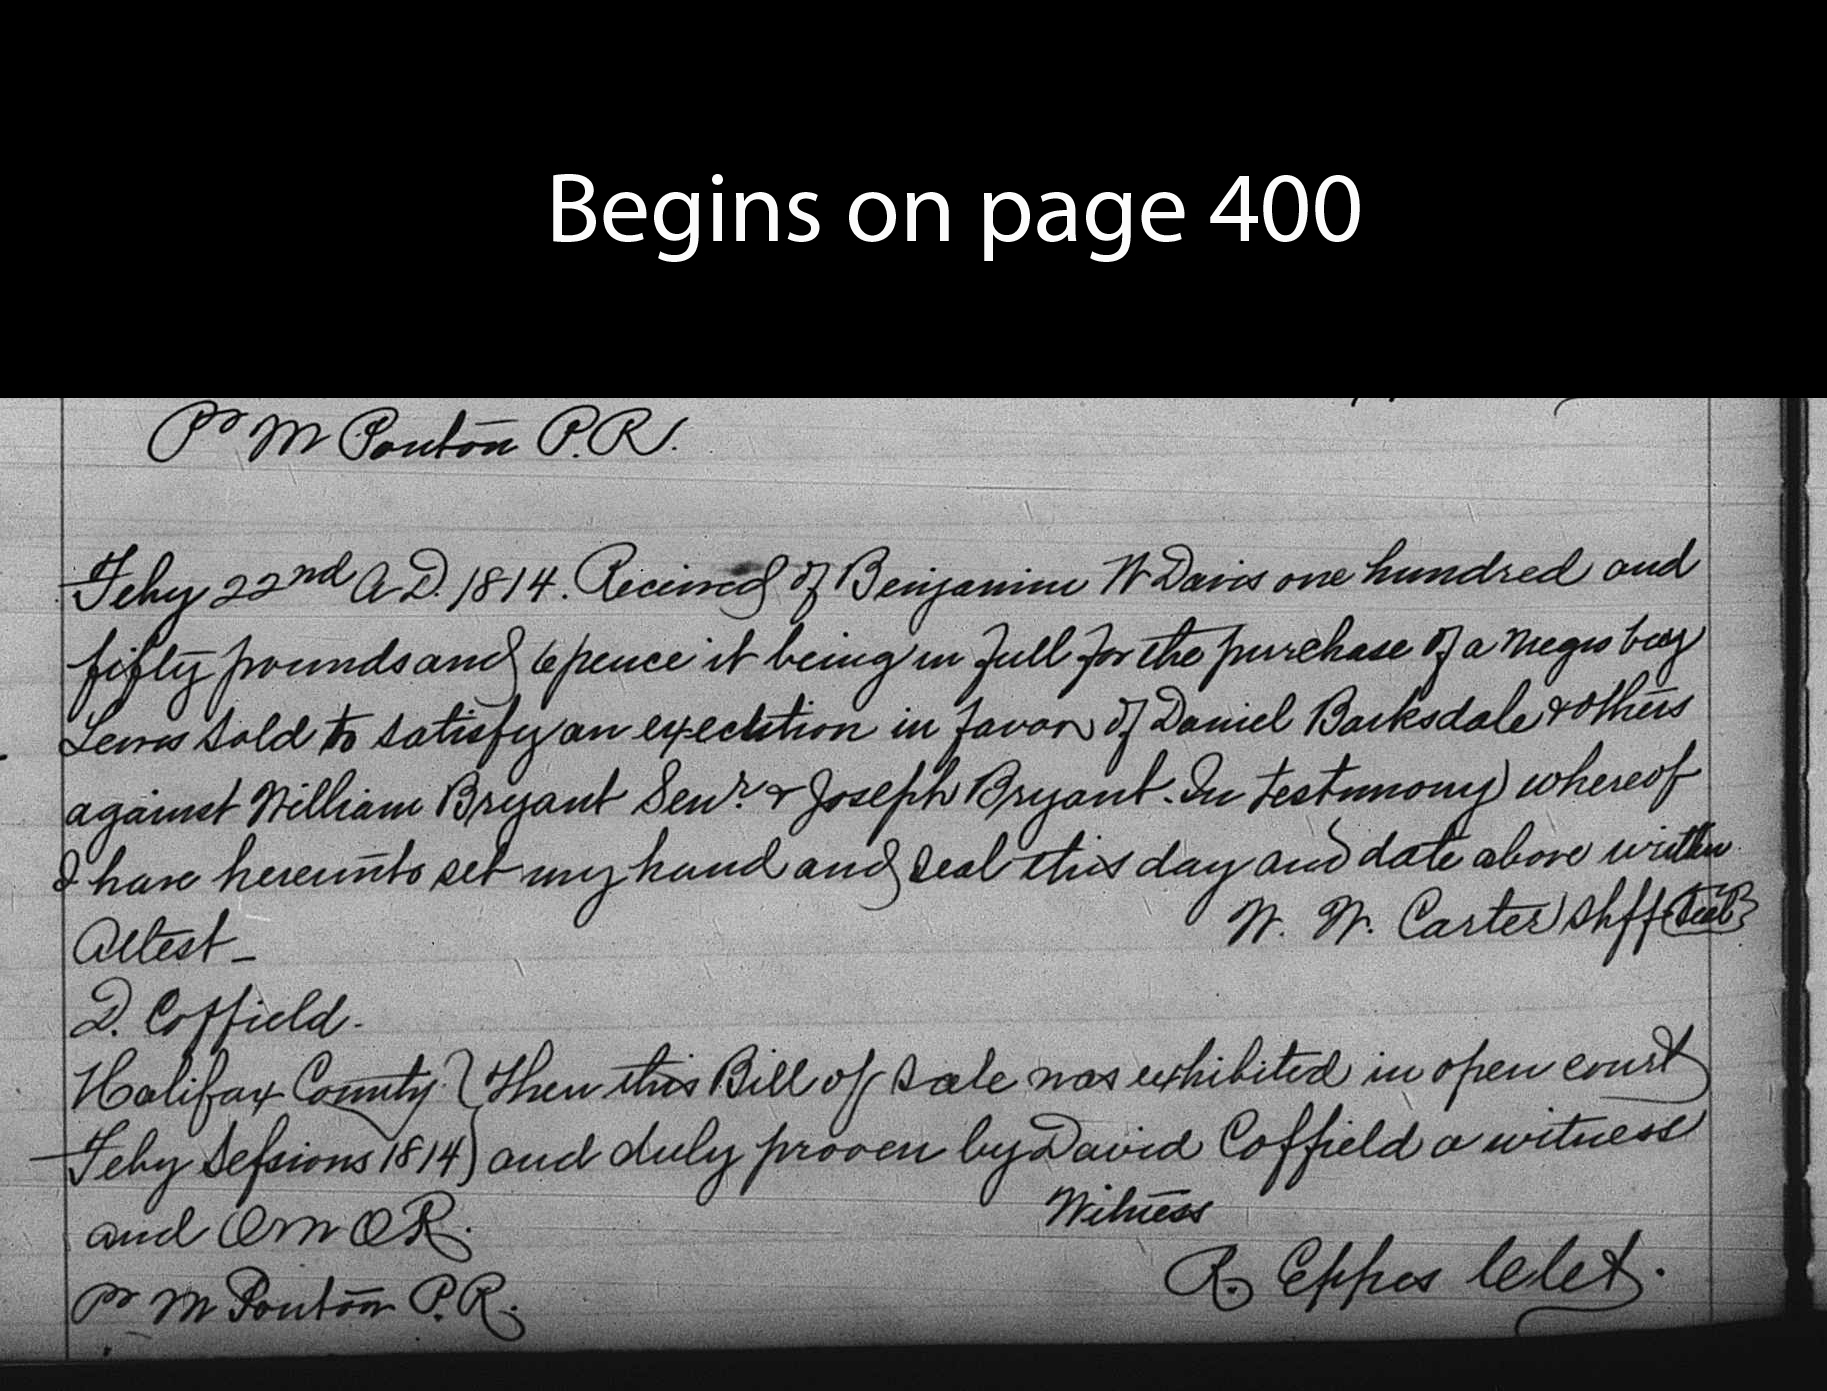 Begins on page 400
Pr M Ponton P.R.
Feby 22nd A.D. 1814. Received of Benjamin W Davis one hundred and
fifty pounds and 6 pence it being in full for the purchase of a negro boy
Lewis sold to satisfy an execution in favor of Daniel Barksdale & others
against William Bryant Senr. & Joseph Bryant. In testimony whereof
I have hereunto set my hand and seal this day and date above written
W. W. Carter Shff Seal
Attest –
D. Coffield.
Halifax County } Then this Bill of Sale was exhibited in open court
Feby Sessions 1814 } and duly proven by David Coffield a witness
and Om OR.
Witness
R. Eppes Clct.
pr M Ponton P.R.